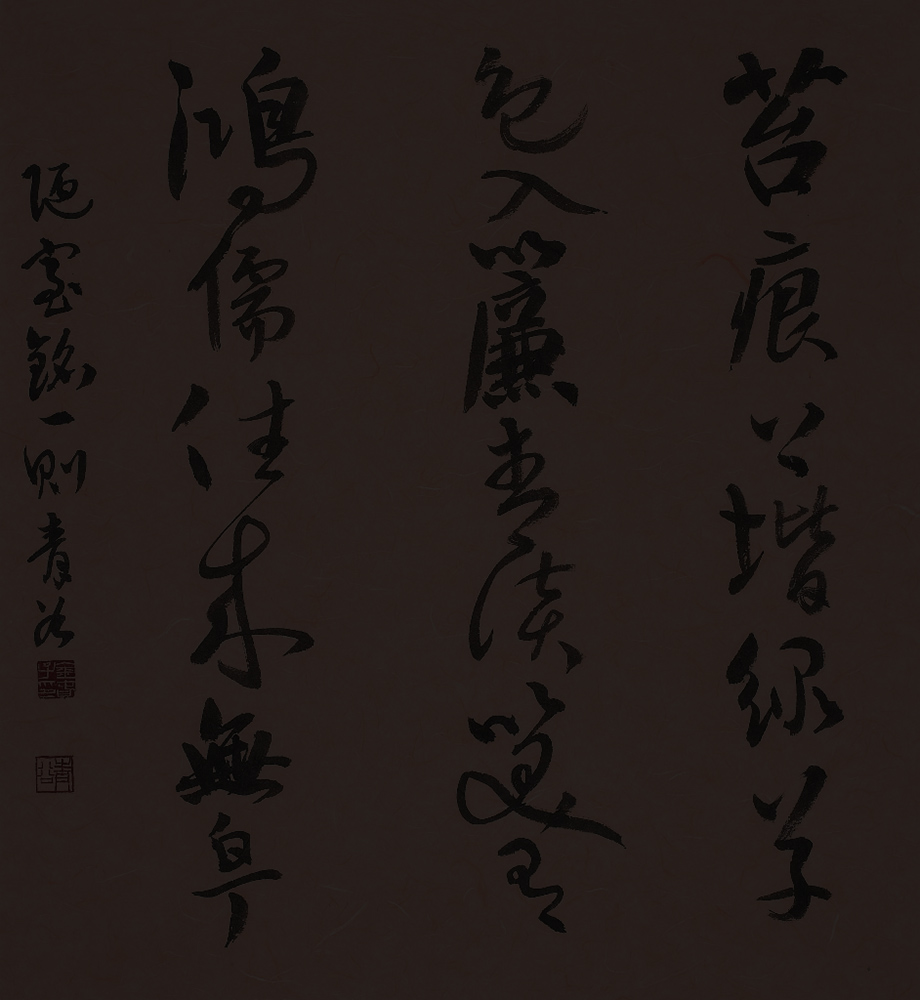 苔痕上堦綠草
色入簾青談笑有
鴻儒往來無白丁
陋室銘一則青谷
青谷